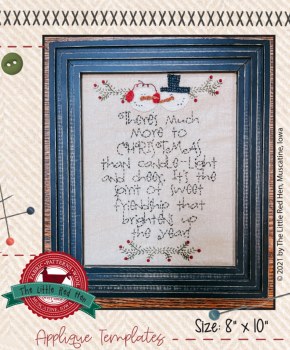 There's Much
More to
CHRISTMAS
than candle-light
and cheer. It's the
spirit of sweet
friendship that
brightens up
the year!
© 2021 by The Little Red Hen, Muscatine, Iowa
FABRIC • PATTERNS
The Little Red Hen
Size: 8" x 10"
Applique Templates